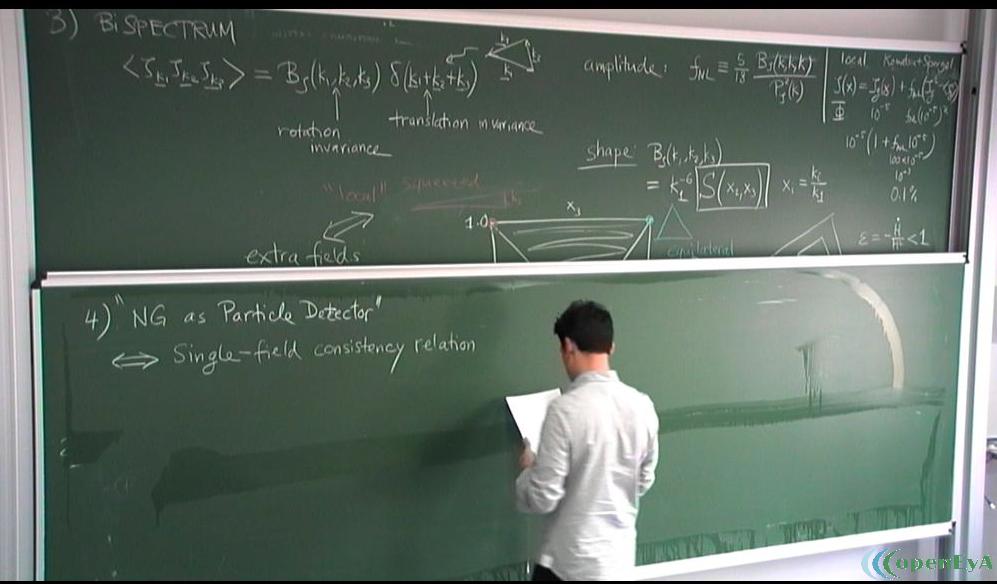 3) BiSPECTRUM
⟨ζ_k₁ ζ_k₂ ζ_k₃⟩ = B_ζ(k₁,k₂,k₃) δ(k₁+k₂+k₃)
rotation invariance
translation invariance
k₁
k₂
amplitude: f_NL ≡ 5/18 B_ζ(k,k,k)/P_ζ²(k)
local Komatsu+Spergel
Φ 10⁻⁵ f_NL(10⁻⁵)²
10⁻⁵(1 + f_NL 10⁻⁵)
100×10⁻⁵
10⁻³
0.1%
shape: B_ζ(k₁,k₂,k₃)
= k₁⁻⁶ S(x₂,x₃) x_i = k_i/k₁
"local" squeezed
1.0
x₃
equilateral
ε = -Ḣ/H² < 1
extra fields
4) "NG as Particle Detector"
⟺ Single-field consistency relation
openEyA